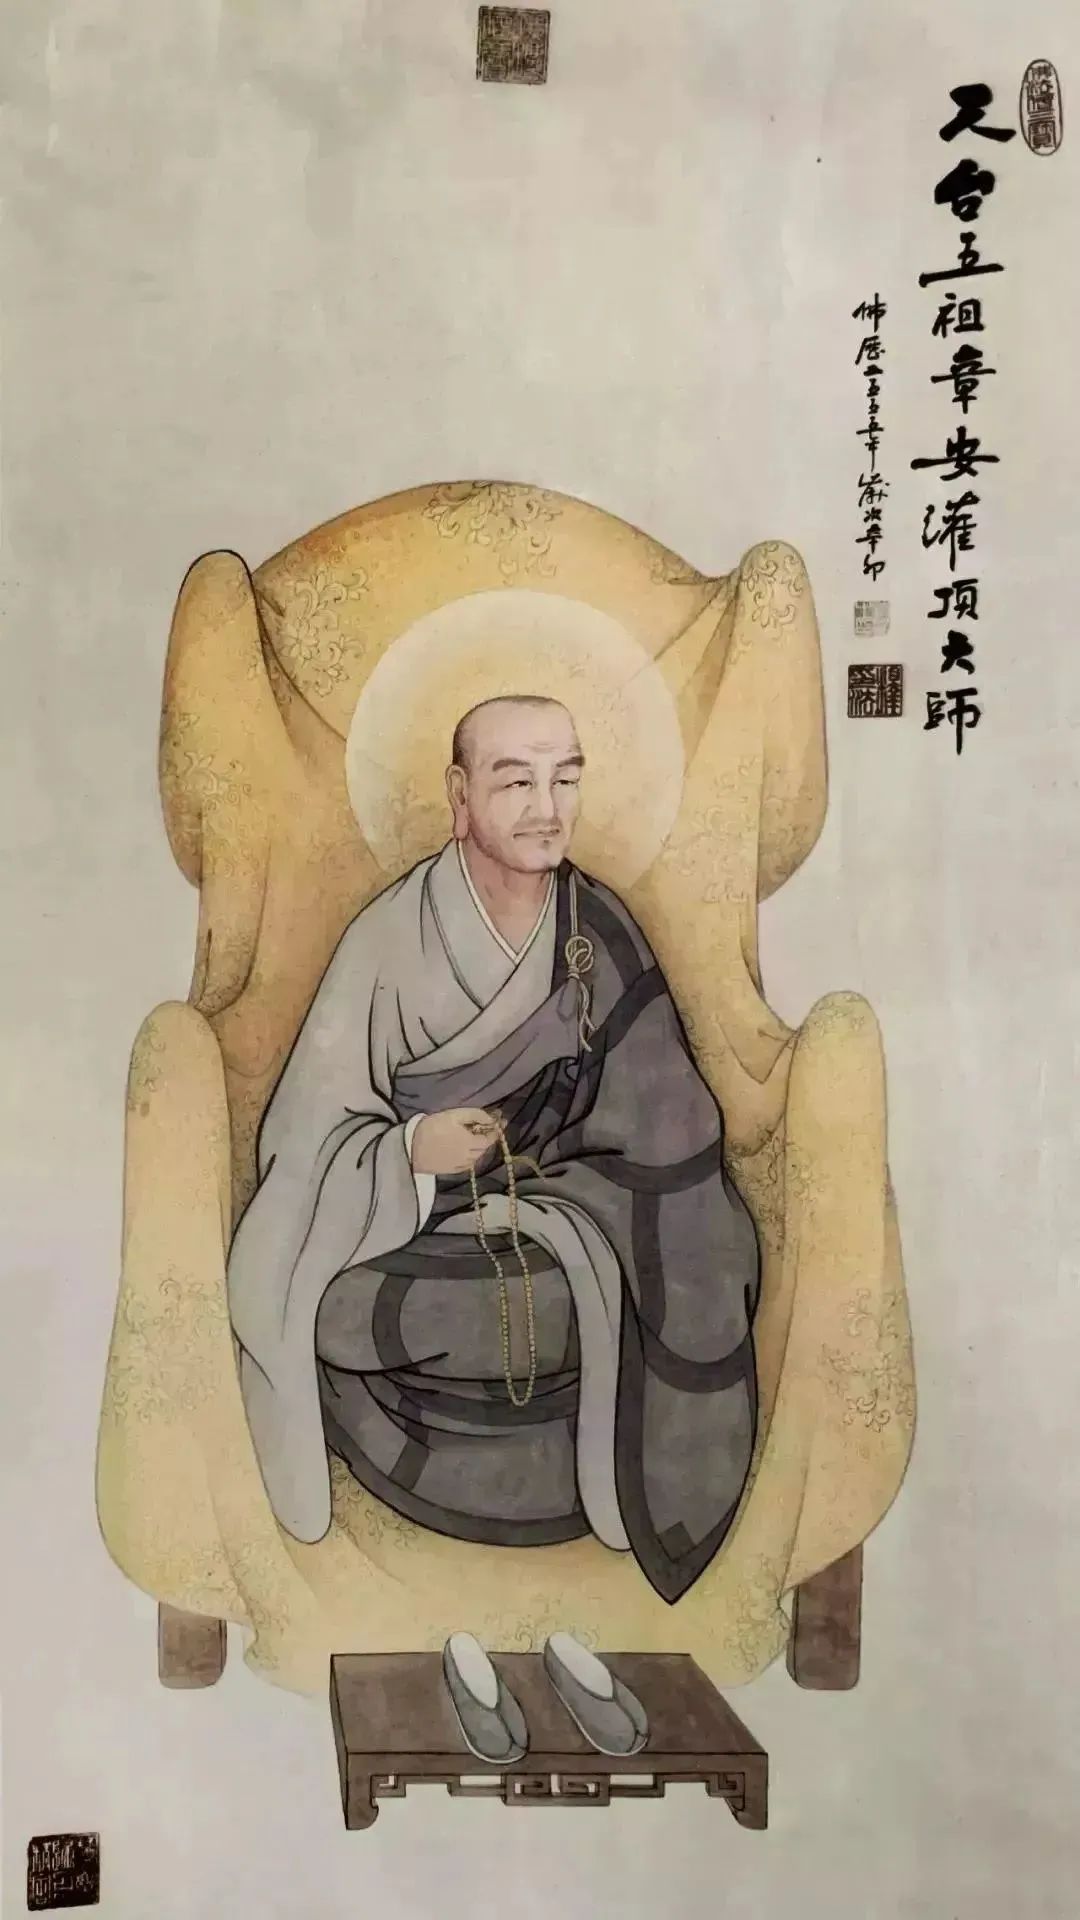 天台五祖章安灌顶大師
佛歷二五五五年歲次辛卯